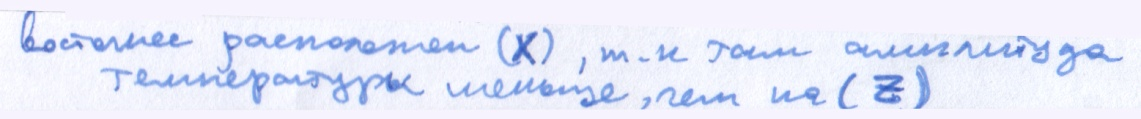 восточнее расположен (X), т.к там амплитуда
температуры меньше, чем на (Z)